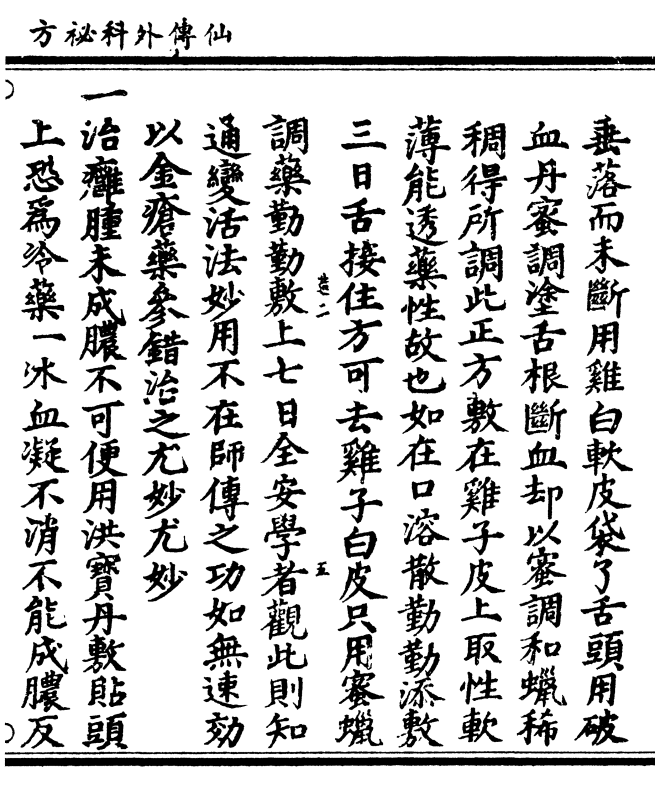 仙傳外科祕方
垂落而未斷用雞白軟皮袋了舌頭用破
血丹蜜調塗舌根斷血却以蜜調和蠟稀
稠得所調此正方敷在雞子皮上取性軟
薄能透藥性故也如在口溶散勤勤添敷
三日舌接住方可去雞子白皮只用蜜蠟
調藥勤勤敷上七日全安學者觀此則知
通變活法妙用不在師傳之功如無速効
以金瘡藥參錯治之尤妙尤妙
一治癰腫未成膿不可便用洪寶丹敷貼頭
上恐爲冷藥一冰血凝不消不能成膿反